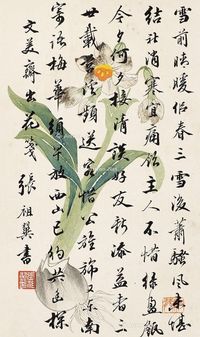 雪前晴暖作春三雪後蕭騷風未恬
結社消寒宜痛飲主人不惜
今夕何夕接清談好友新添益者三
廿載頻送客公旌旆又東南
寄語梅華須早放西山已約共幽探
文美齋出花箋 張祖翼書